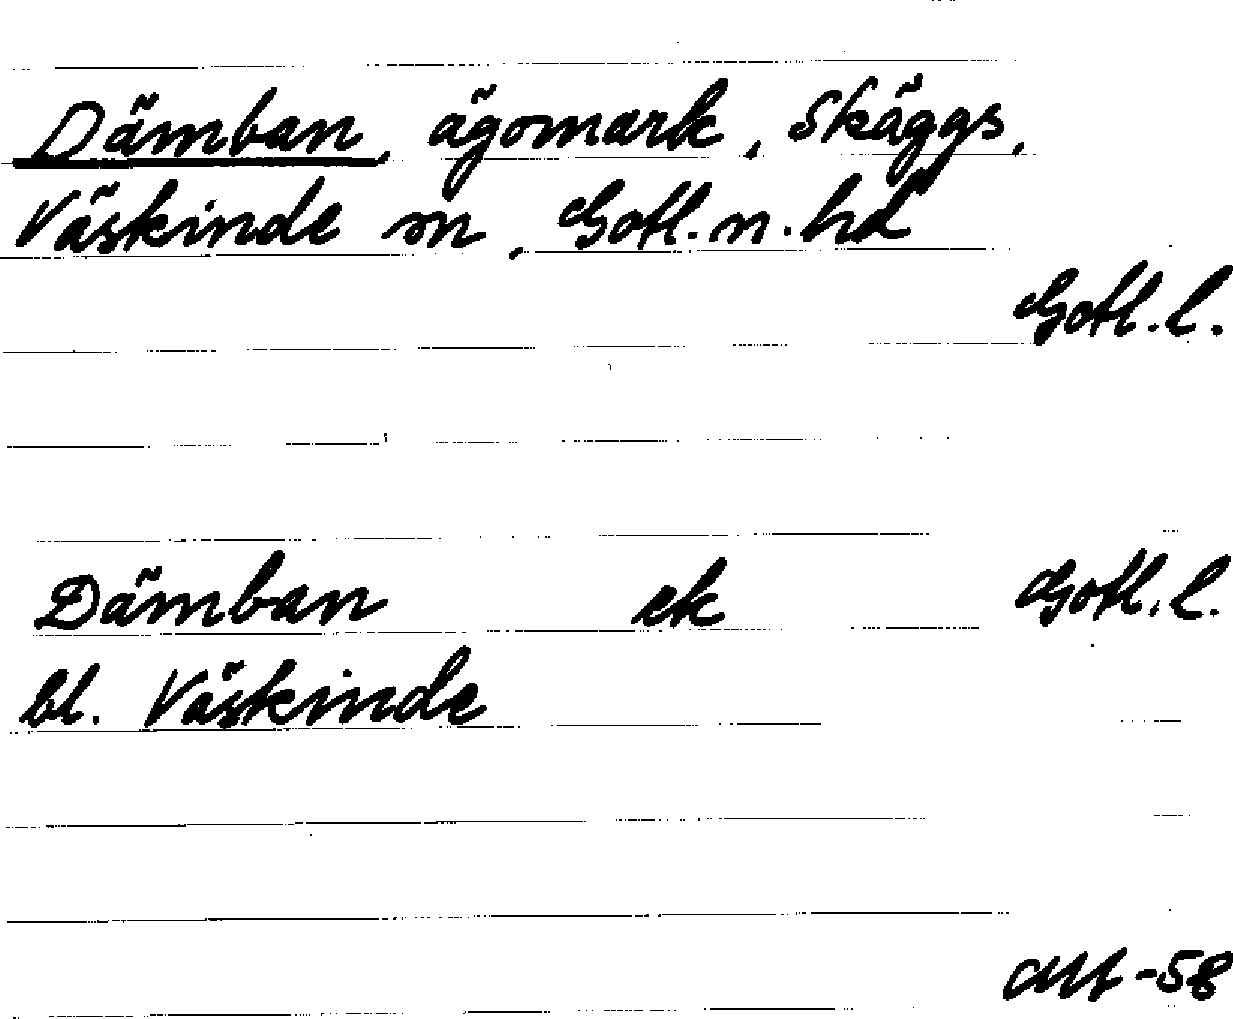 Dämban, ägomark, Skäggs,
Väskinde sn, Gotl. n. hd
Gotl. l.
Dämban ek Gotl. l.
bl. Väskinde
-58